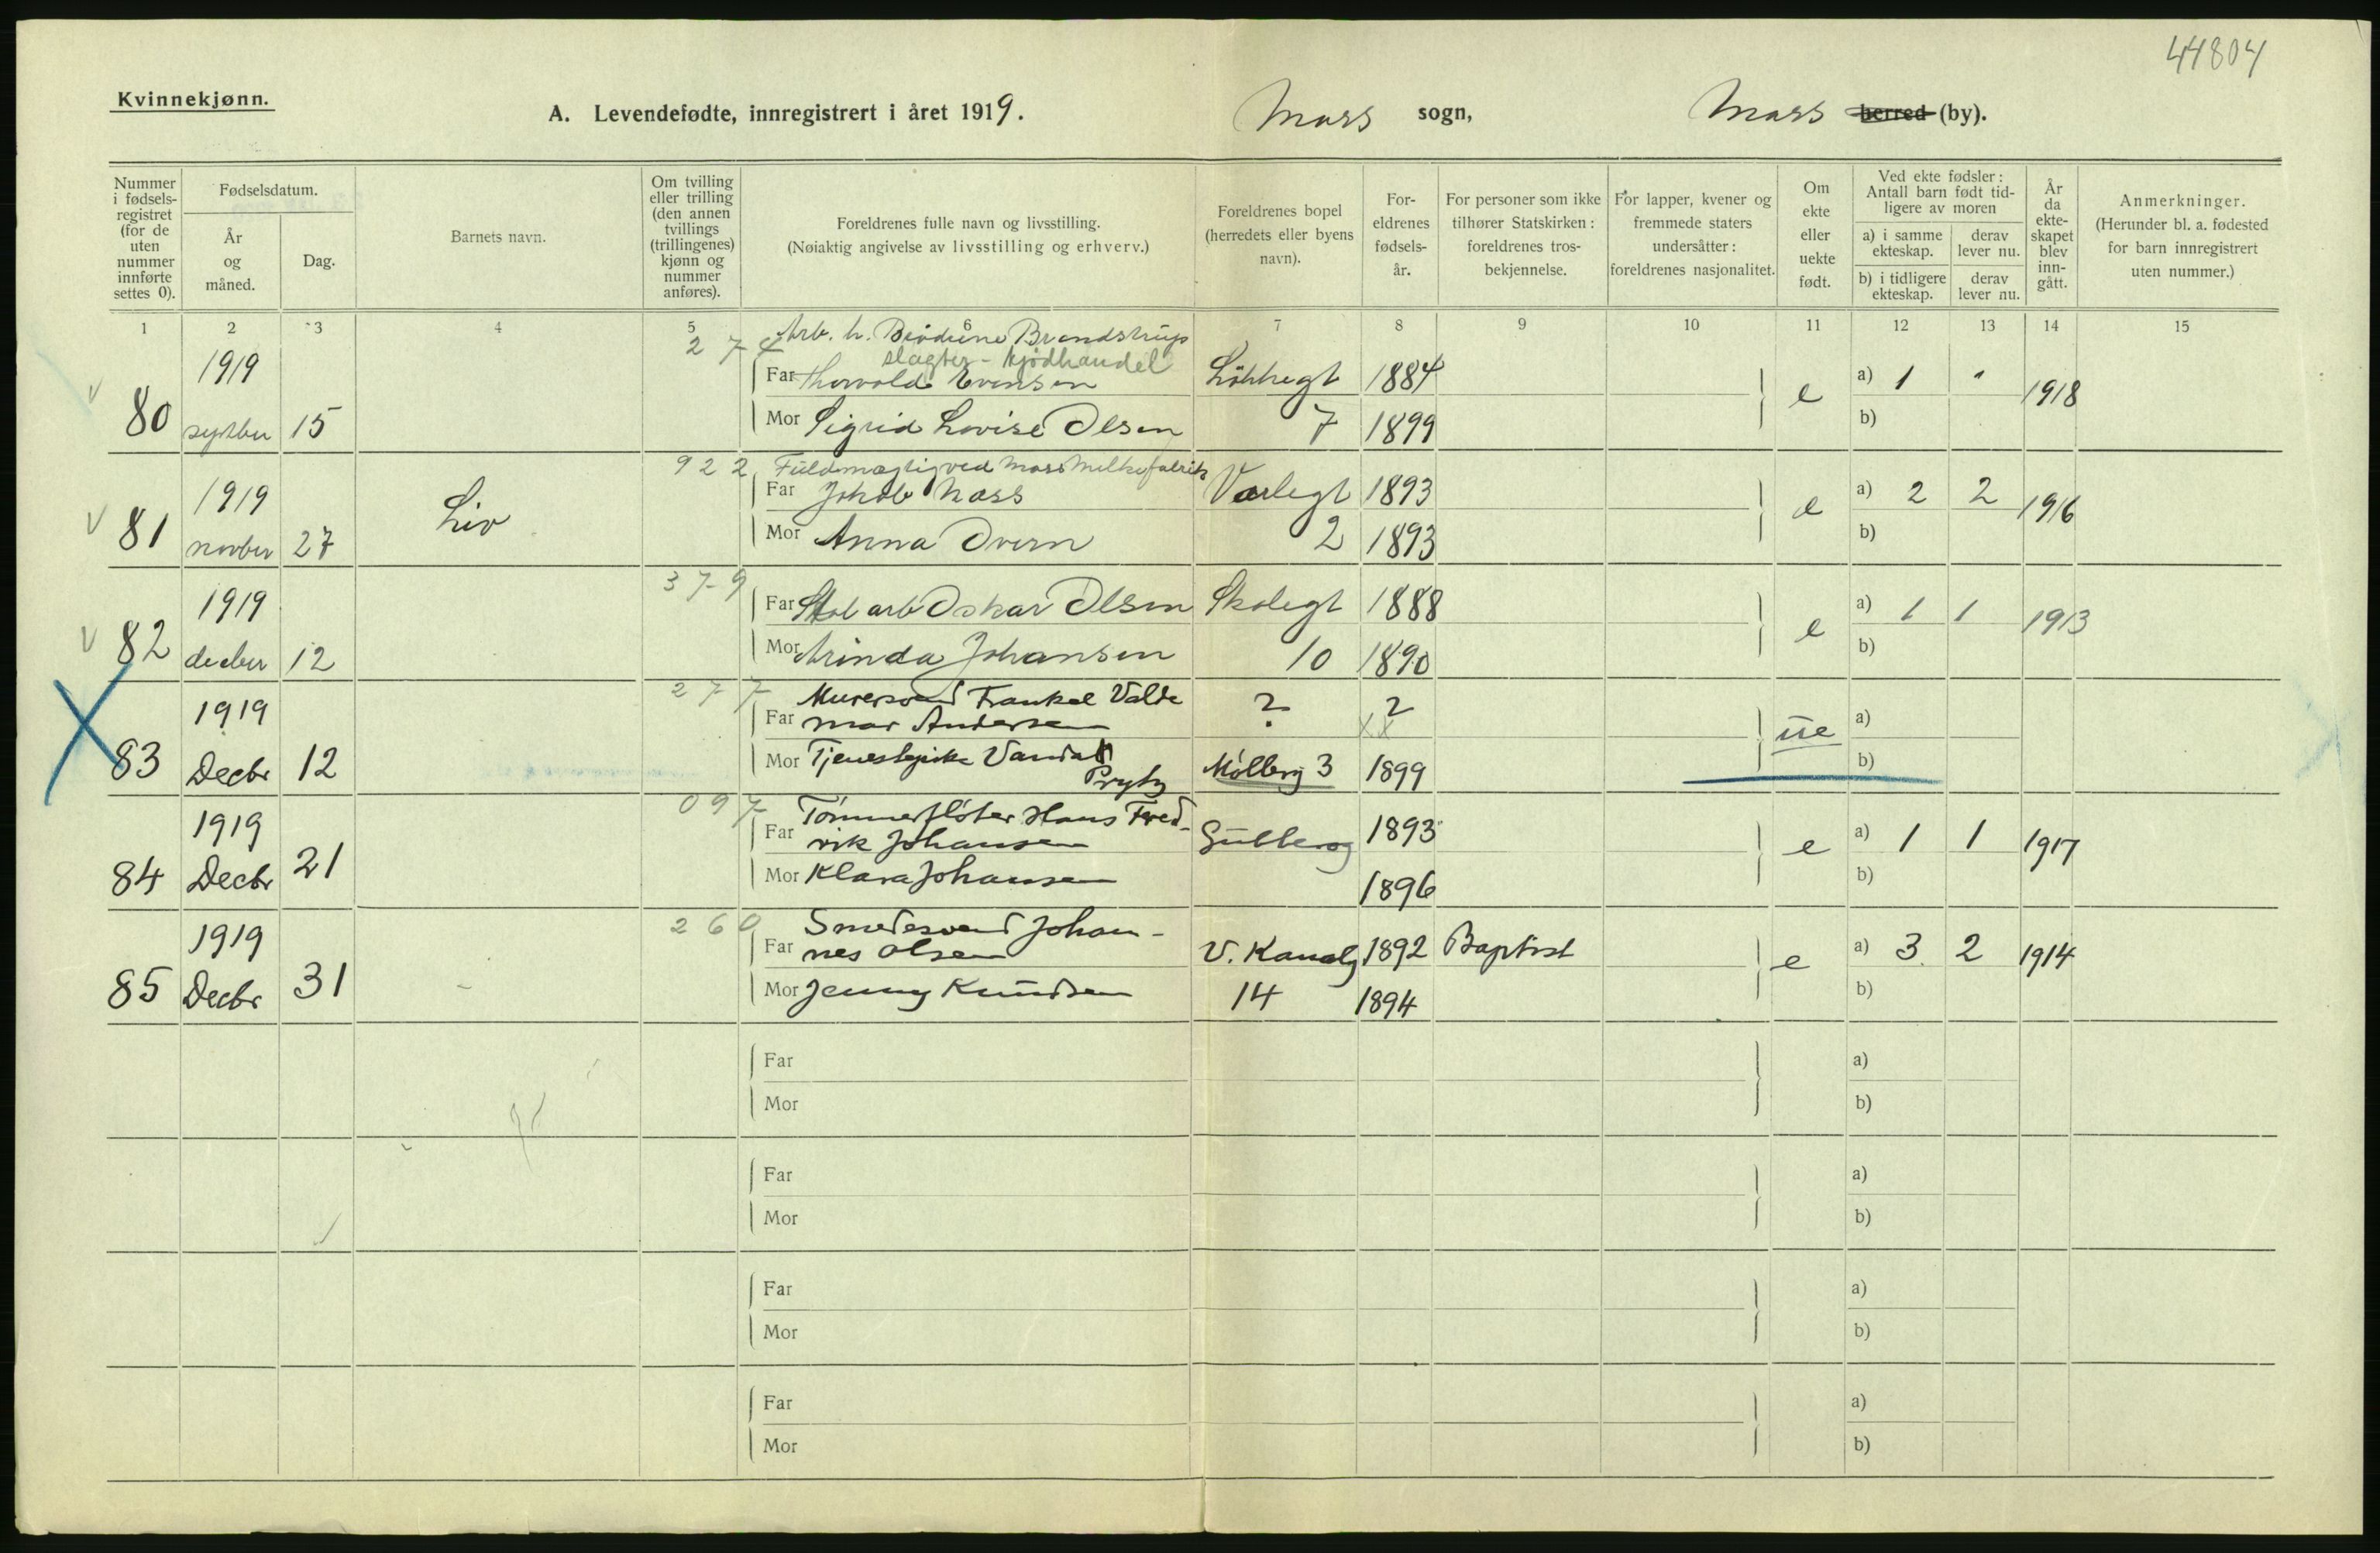 44804
Kvinnekjønn.
A. Levendefødte, innregistrert i året 1919.
Moss sogn,
Moss herred (by).
Nummer i fødsels-registret (for de uten nummer innførte settes 0).
Fødselsdatum.
År og måned.
Dag.
Barnets navn.
Om tvilling eller trilling (den annen tvillings (trillingenes) kjønn og nummer anføres).
Foreldrenes fulle navn og livsstilling.
(Nøiaktig angivelse av livsstilling og erhverv.)
Foreldrenes bopel (herredets eller byens navn).
For-eldrenes fødsels-år.
For personer som ikke tilhører Statskirken: foreldrenes tros-bekjennelse.
For lapper, kvener og fremmede staters undersåtter: foreldrenes nasjonalitet.
Om ekte eller uekte født.
Ved ekte fødsler: Antall barn født tid-ligere av moren
a) i samme ekteskap.
derav lever nu.
b) i tidligere ekteskap.
derav lever nu.
År da ekte-skapet blev inn-gått.
Anmerkninger.
(Herunder bl. a. fødested for barn innregistrert uten nummer.)
1 2 3 4 5 6 7 8 9 10 11 12 13 14 15
274 Arb. h. Brødrene Brandstrup
slagter - kjødhandel
1919 Far Thorvald Evensen Løkkegt 1884 e a) 1 1918
80 septbr 15 Mor Sigrid Lovise Olsen 7 1899 b)
922 Fuldmægtig ved Moss Melkefabrik
1919 Liv Far Jakob Næss Varlegt 1893 e a) 2 2 1916
81 novber 27 Mor Anna Overn 2 1893 b)
379
1919 Far arb Oskar Olsen Skolegt 1888 e a) 1 1 1913
82 decber 12 Mor Arinda Johansen 10 1890 b)
277 Murersvend Frankel Valde
1919 Far mar Andersen ? ? ue a)
83 Decbr 12 Mor Tjenestepike Vanda
Prytz Mølleg 3 1899 b)
097 Tømmerfløter Hans Fred-
1919 Far rik Johansen Gulberg 1893 e a) 1 1 1917
84 Decbr 21 Mor Klara Johansen 1896 b)
260 Smedesvend Johan-
1919 Far nes Olsen V. Kanalg 1892 Baptist e a) 3 2 1914
85 Decbr 31 Mor Jenny Knudsen 14 1894 b)
Far a)
Mor b)
Far a)
Mor b)
Far a)
Mor b)
Far a)
Mor b)